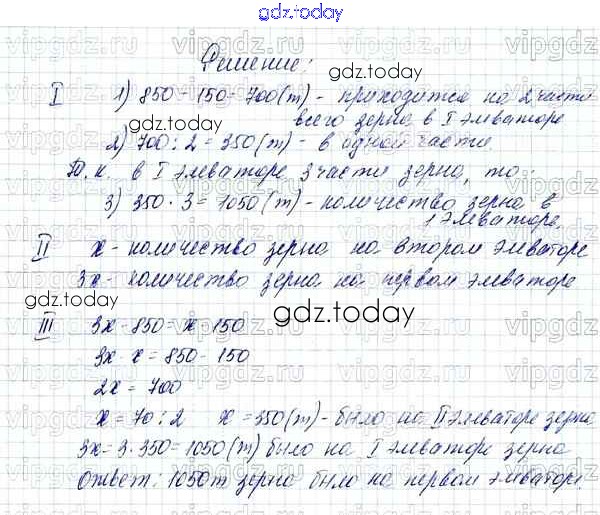 gdz.today
Решение:
gdz.today
I 1) 850 - 150 = 700 (т) - приходится на 2 части
всего зерна в I элеваторе
gdz.today
2) 700 : 2 = 350 (т) - в одной части.
Т.к. в I элеваторе 3 части зерна, то:
3) 350 · 3 = 1050 (т) - количество зерна в
1 элеваторе.
II x - количество зерна на втором элеваторе
3x - количество зерна на первом элеваторе
gdz.today
gdz.today
III 3x - 850 = x - 150
3x - x = 850 - 150
2x = 700
x = 70 : 2 x = 350 (т) - было на II элеваторе зерна
3x = 3 · 350 = 1050 (т) было на I элеваторе зерна
Ответ: 1050 т зерна было на первом элеваторе.
vipgdz.ru